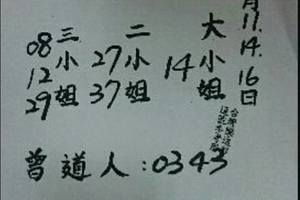 月17.14.16日
大小姐
14
二小姐
27
37
三小姐
08
12
29
曾道人:0343